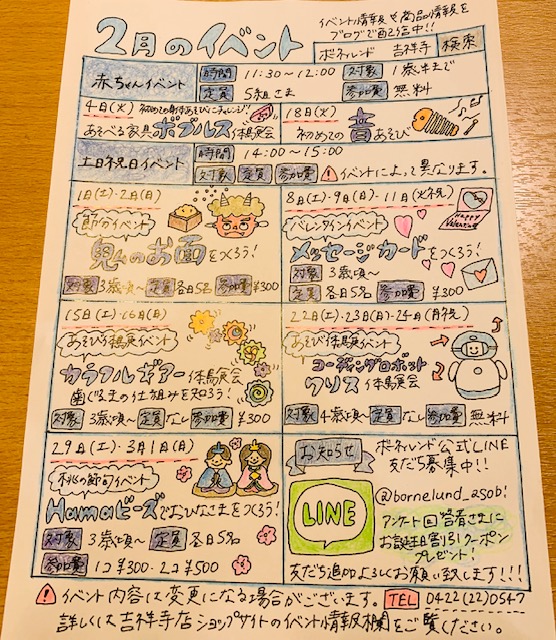 2月のイベント
イベント情報や商品情報を
ブログで配信中!!
ボーネルンド 吉祥寺 検索
赤ちゃんイベント
時間 11:30〜12:00 対象 1歳半まで
定員 5組さま 参加費 無料
4日(火) 初めての身体あそびにチャレンジ
あそべる家具ボブルス体験会
18日(火)
初めての音あそび
土日祝日イベント
時間 14:00〜15:00
対象 定員 参加費 イベントによって異なります。
1日(土)・2日(日)
節分イベント
鬼のお面をつくろう!
対象 3歳頃〜 定員 各日5名 参加費 ¥300
8日(土)・9日(日)・11日(火祝)
バレンタインイベント
Happy
Valentine
メッセージカードをつくろう!
対象 3歳頃〜
定員 各日5名 参加費 ¥300
15日(土)・16日(日)
あそび体験イベント
カラフルギアー体験会
歯ぐるまの仕組みを知ろう!
対象 3歳頃〜 定員 なし 参加費 ¥300
22日(土)・23日(日)・24日(月祝)
あそび体験イベント
コーディングロボット
クリス体験会
対象 4歳頃〜 定員 なし 参加費 無料
29日(土)・3月1日(日)
桃の節句イベント
Hamaビーズでおひなさまをつくろう!
対象 3歳頃〜 定員 各日5名
参加費 1コ ¥300・2コ ¥500
お知らせ
ボーネルンド公式LINE
友だち募集中!!
LINE
@bornelund_asobi
アンケート回答者さまに
お誕生日割引クーポン
プレゼント!
友だち追加よろしくお願い致します!!!
イベント内容は変更になる場合がございます。 TEL 0422(22)0547
詳しくは吉祥寺店ショップサイトのイベント情報欄をご覧ください。